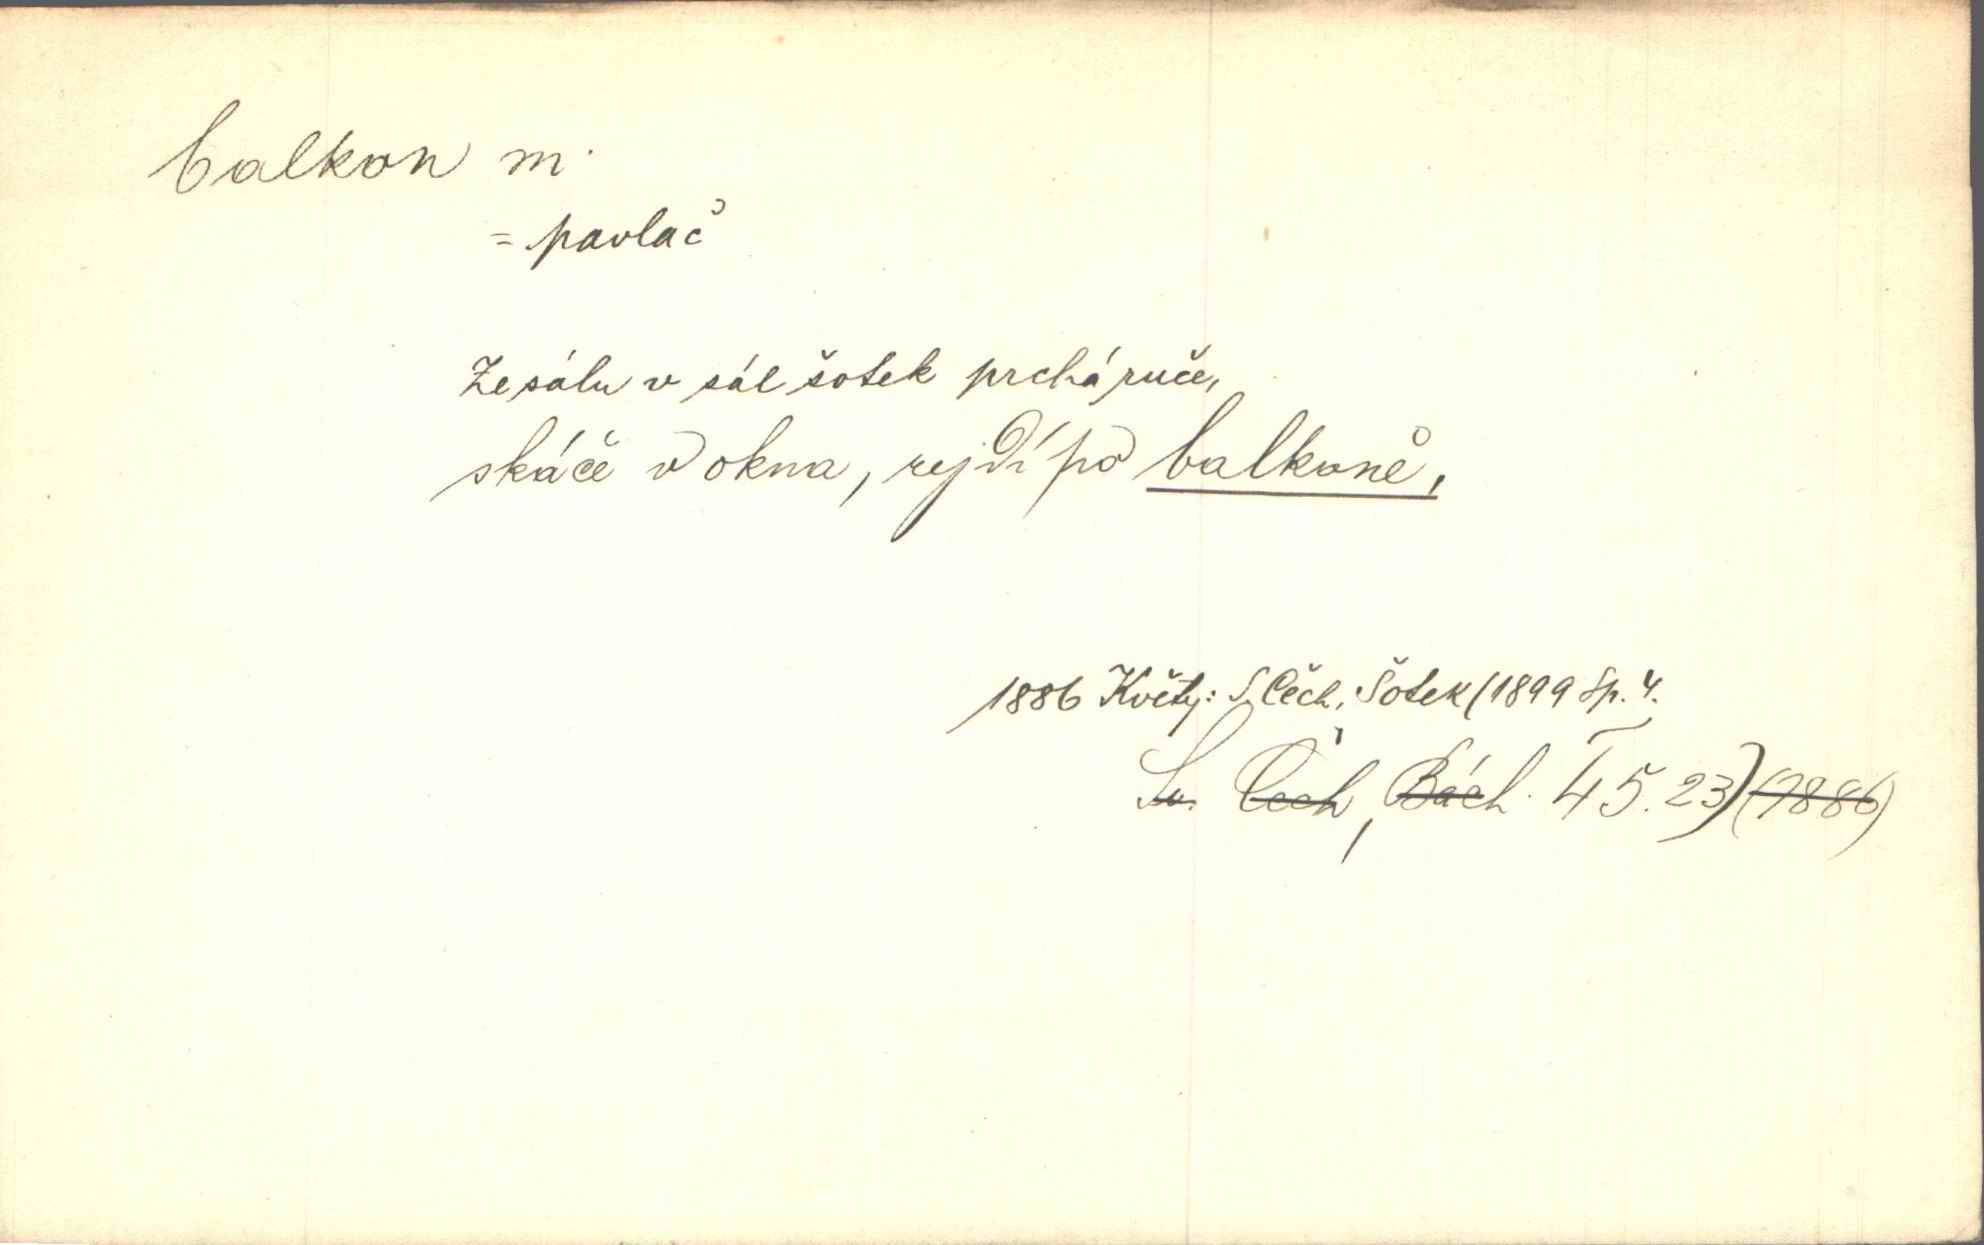 balkon m.
= pavlač
Ze sálu v sál šotek prchá ruče,
skáče v okna, rejdí po balkoně,
1886 Květy: S. Čech, Šotek (1899 Sp. 4.
Sv. Čech, Bách. I 5. 23) (1886)